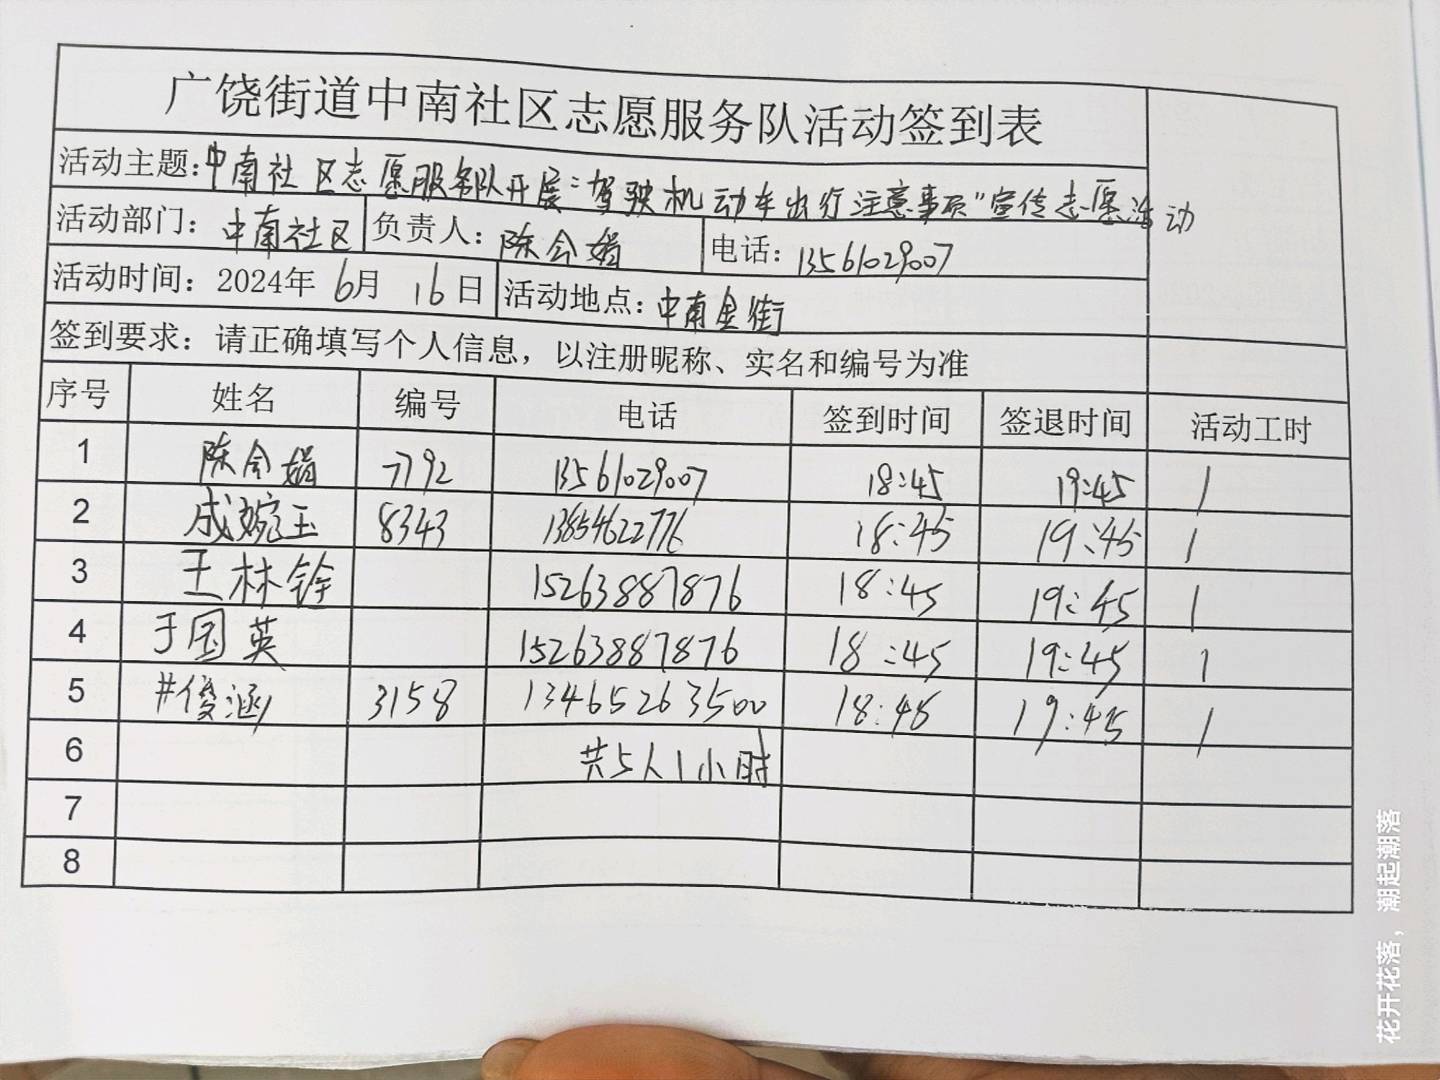 广饶街道中南社区志愿服务队活动签到表
活动主题:中南社区志愿服务队开展"驾驶机动车出行注意事项"宣传志愿活动
活动部门:中南社区 负责人:陈会娟 电话:13561029007
活动时间:2024年6月16日 活动地点:中南金街
签到要求:请正确填写个人信息,以注册昵称、实名和编号为准
序号 姓名 编号 电话 签到时间 签退时间 活动工时
1 陈会娟 7792 13561029007 18:45 19:45 1
2 成婉玉 8343 13854622776 18:45 19:45 1
3 王林铨 15263887876 18:45 19:45 1
4 于国英 15263887876 18:45 19:45 1
5 #俊涵 3158 13465263500 18:45 19:45 1
6 共5人1小时
7
8
花开花落,潮起潮落